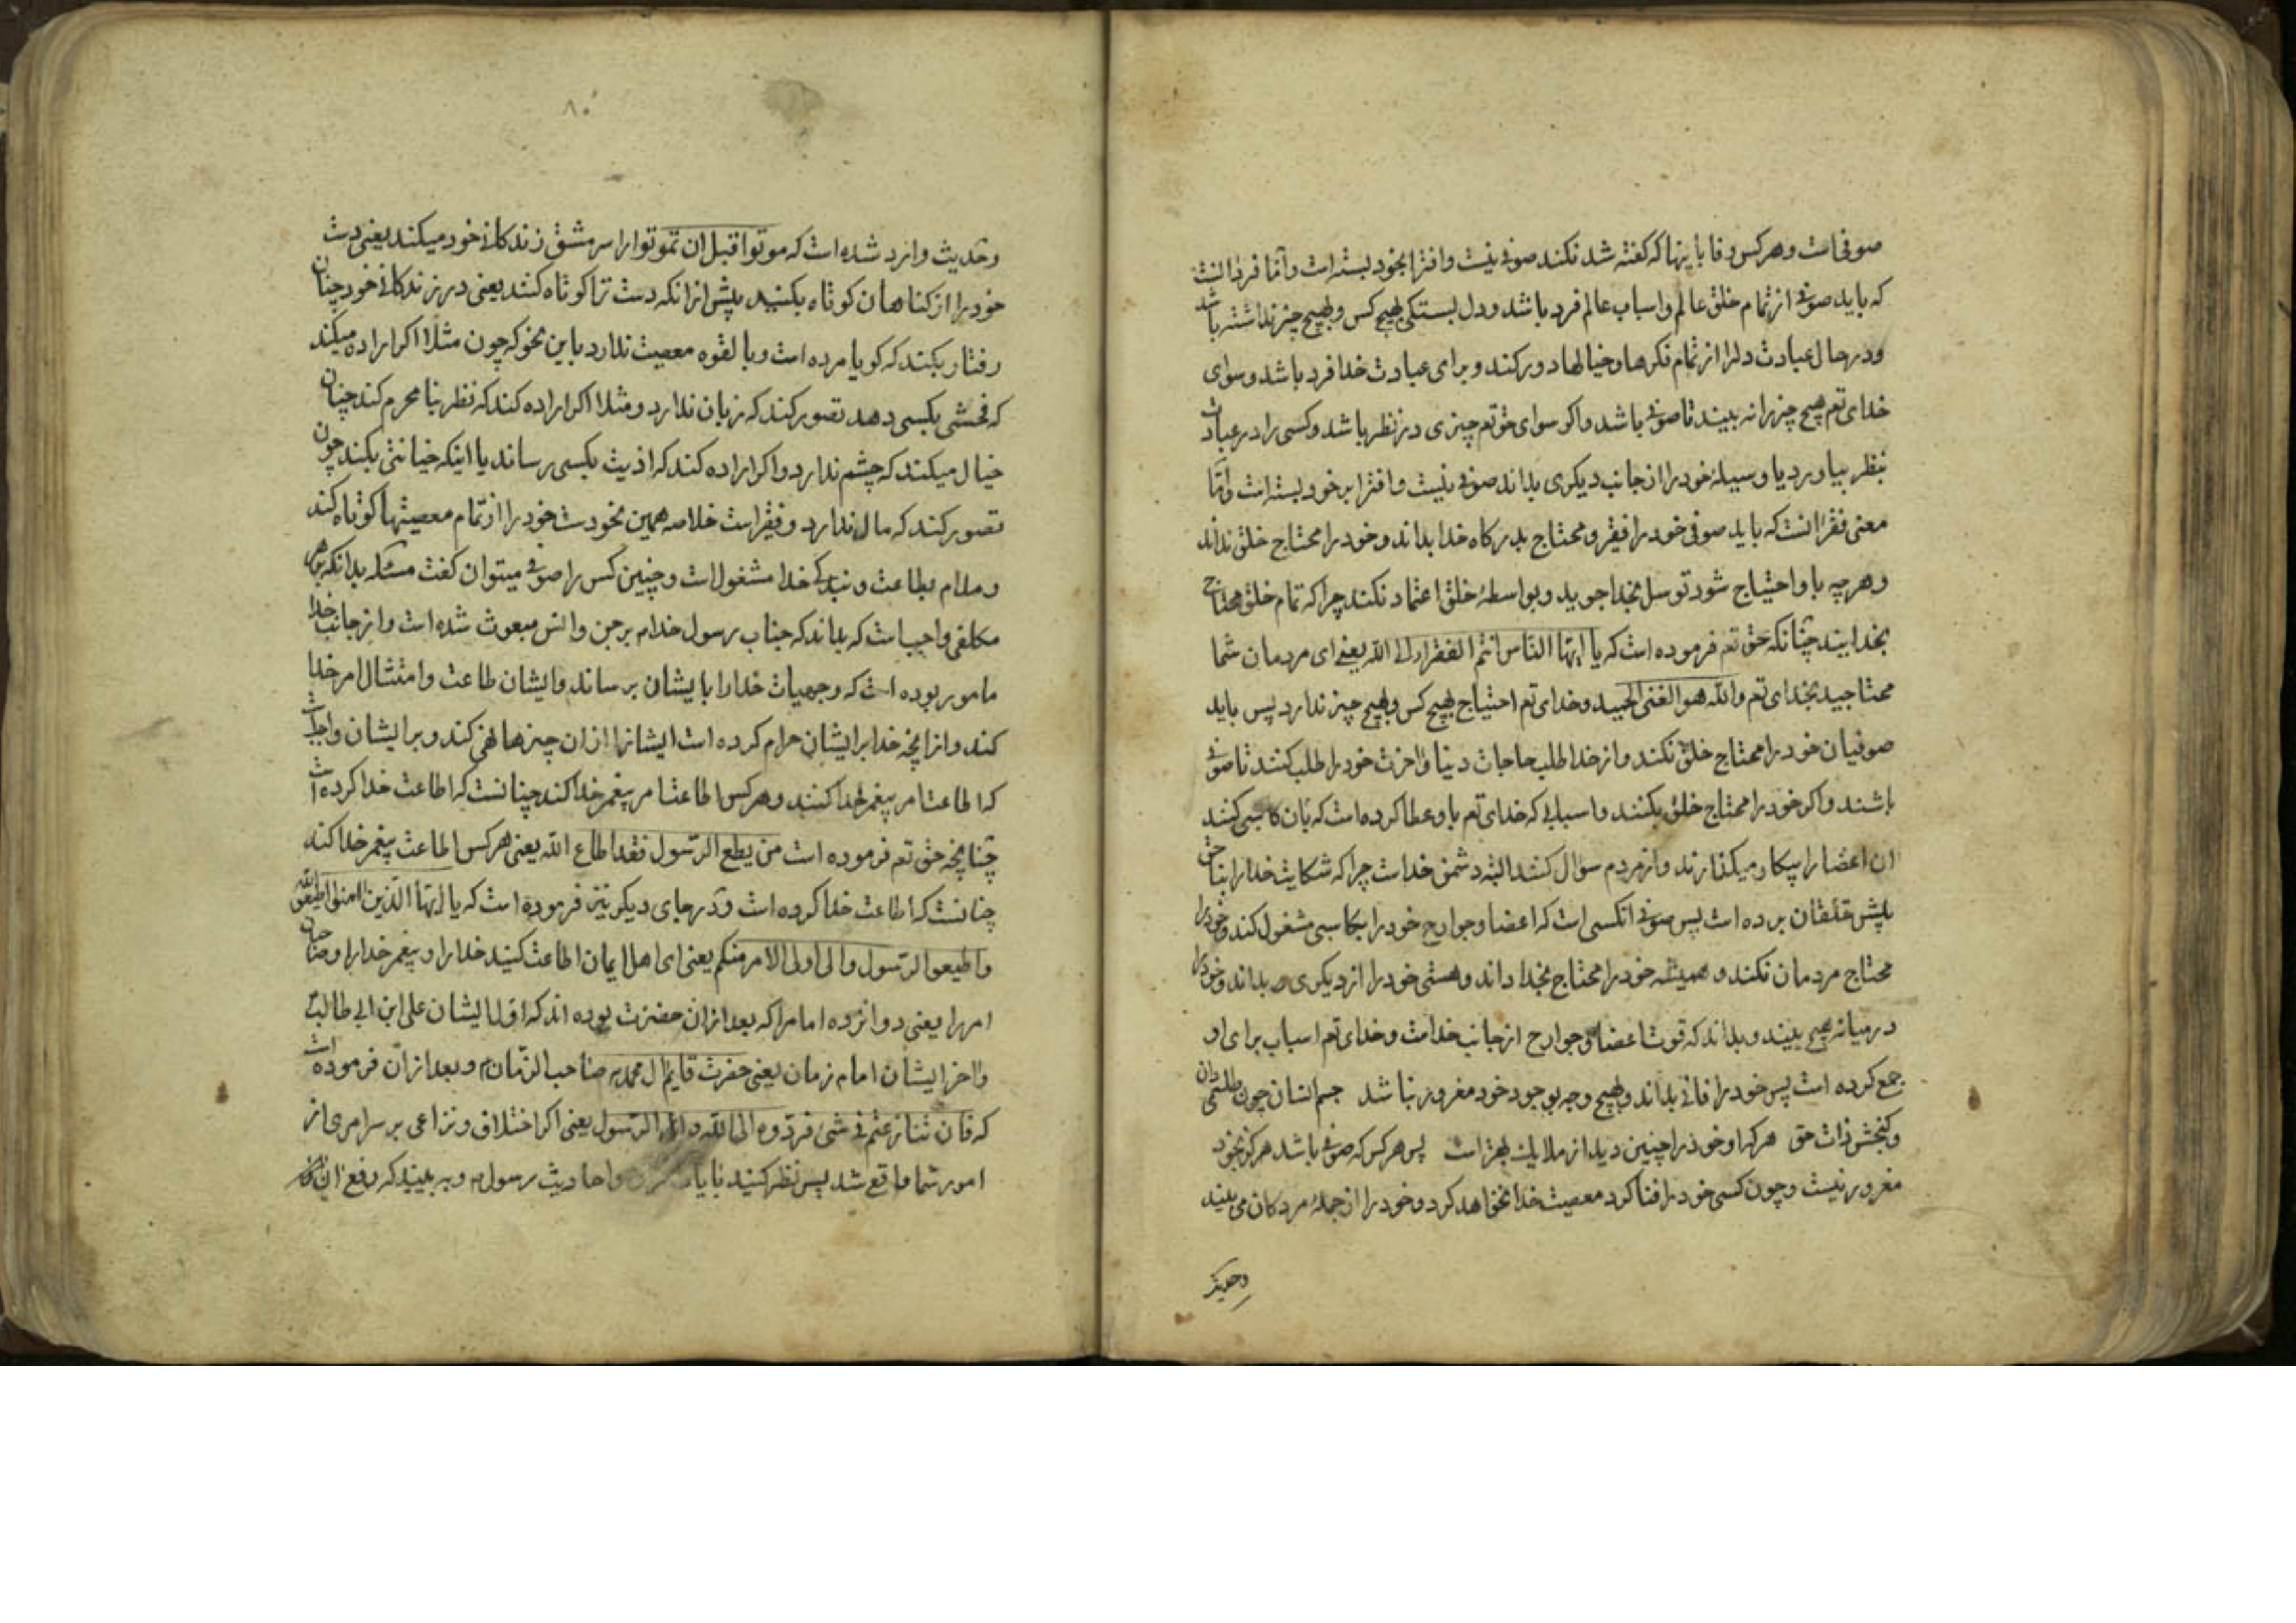 صوفیست و هرکس وفا باینها که گفته شد نکند صوفی نیست و افترا بخود بسته است و اما فرد انست
که باید صوفی از تمام خلق عالم و اسباب عالم فرد باشد و دل بستکی بهیچ کس و بهیچ چیز نداشته باشد
و در حال عبادت دلرا از تمام فکرها و خیالها دور کند و برای عبادت خدا فرد باشد و سوای
خدای تعم هیچ چیز را نه بیند تا صوفی باشد و اکر سوای حق تعم چیزی در نظر باشد و کسی را در عبادت
بنظر بیاورد یا وسیلهٔ خود را از جانب دیکری بداند صوفی نیست و افترا بر خود بسته است و امّا
معنی فقر انست که باید صوفی خود را فقیر و محتاج بدرکاه خدا بداند و خود را محتاج خلق نداند
و هر چه باو احتیاج شود توسل بخدا جوید و بواسطهٔ خلق اعتماد نکند چرا که تمام خلق محتاج
بخدایند چنانکه حق تعم فرموده است که یا ایها الناس انتم الفقراء الی الله یعنی ای مردمان شما
محتاجید بخدای تعم والله هو الغنی الحمید و خدای تعم احتیاج بهیچ کس و بهیچ چیز ندارد پس باید
صوفیان خود را محتاج خلق نکند و از خدا طلب حاجات دنیا و اخرت خود را طلب کنند تا صوفی
باشند و اکر خود را محتاج خلق بکنند و اسبابی که خدای تعم باو عطا کرده است که بان کاسبی کنند
ان اعضا را بیکار میکذارند و از مردم سوال کنند البته دشمن خداست چرا که شکایت خدا را بناحق
پیش خلقان برده است پس صوفی انکسی است که اعضا و جوارح خود را بکاسبی مشغول کند و خود را
محتاج مردمان نکند و همیشه خود را محتاج بخدا داند و هستی خود را از دیکری بداند و خود را
در میانه هیچ بیند و بداند که قوت اعضا و جوارح از جانب خداست و خدای تعم اسباب برای او
جمع کرده است پس خود را فانی بداند و بهیچ وجه بوجود خود مغرور نباشد جسم انسان چون طلسمی دان
و کنجش ذات حق هر که او خود را چنین دید از ملایک بهتر است پس هر کس که صوفی باشد هرکز بخود
مغرور نیست و چون کسی خود را فنا کرد معصیت خدا نخواهد کرد و خود را از جملهٔ مردکان می بیند
وحدیث
۸۰
و حدیث وارد شده است که موتوا قبل ان تموتوا را سر مشق زندکانی خود میکند یعنی دست
خود را از کناهان کوتاه بکنید پیش از انکه دست ترا کوتاه کنند یعنی در زندکانی خود چنان
رفتار بکند که کویا مرده است و بالقوه معصیت ندارد باین نحو که چون مثلا اکر اراده میکند
که فحشی بکسی دهد تصور کند که زبان ندارد و مثلا اکر اراده کند که نظر بنا محرم کند چنان
خیال میکند که چشم ندارد و اکر اراده کند که اذیت بکسی رساند یا اینکه خیانتی بکند چون
تصور کند که مال ندارد و فقیر است خلاصه همین نحو دست خود را از تمام معصیتها کوتاه کند
و مدام بطاعت و بندکی خدا مشغولست و چنین کس را صوفی میتوان کفت مسئله بدانکه بر هر
مکلفی واجبست که بداند که جناب رسول خدام بر جن و انس مبعوث شده است و از جانب خدا
مامور بوده است که وجهیات خدا را بایشان برساند و ایشان طاعت و امتثال امر خدا
کند و از انچه خدا بر ایشان حرام کرده است ایشانرا از ان چیزها نهی کند و بر ایشان واجبست
که اطاعت امر پیغمر خدا کنند و هر کس اطاعت امر پیغمر خدا کند چنانست که اطاعت خدا کرده است
چنانچه حق تعم فرموده است من یطع الرسول فقد اطاع الله یعنی هر کس اطاعت پیغمر خدا کند
چنانست که اطاعت خدا کرده است و در جای دیکر نیز فرموده است که یا ایها الذین امنوا اطیعوا الله
واطیعوا الرسول والی اولی الامر منکم یعنی ای اهل ایمان اطاعت کنید خدا را و پیغمر خدا را و صاحبان
امر را یعنی دوازده امام را که بعد از ان حضرت بوده اند که اول ایشان علی ابن ابی طالب
و اخر ایشان امام زمان یعنی حضرت قایم ال محمد صاحب الزمان و بعد از ان فرموده است
که فان تنازعتم فی شیء فردّوه الی الله والی الرسول یعنی اکر اختلاف و نزاعی بر سر امری از
امور شما واقع شد پس نظر کنید و احادیث رسول و به بینید که رفع ان